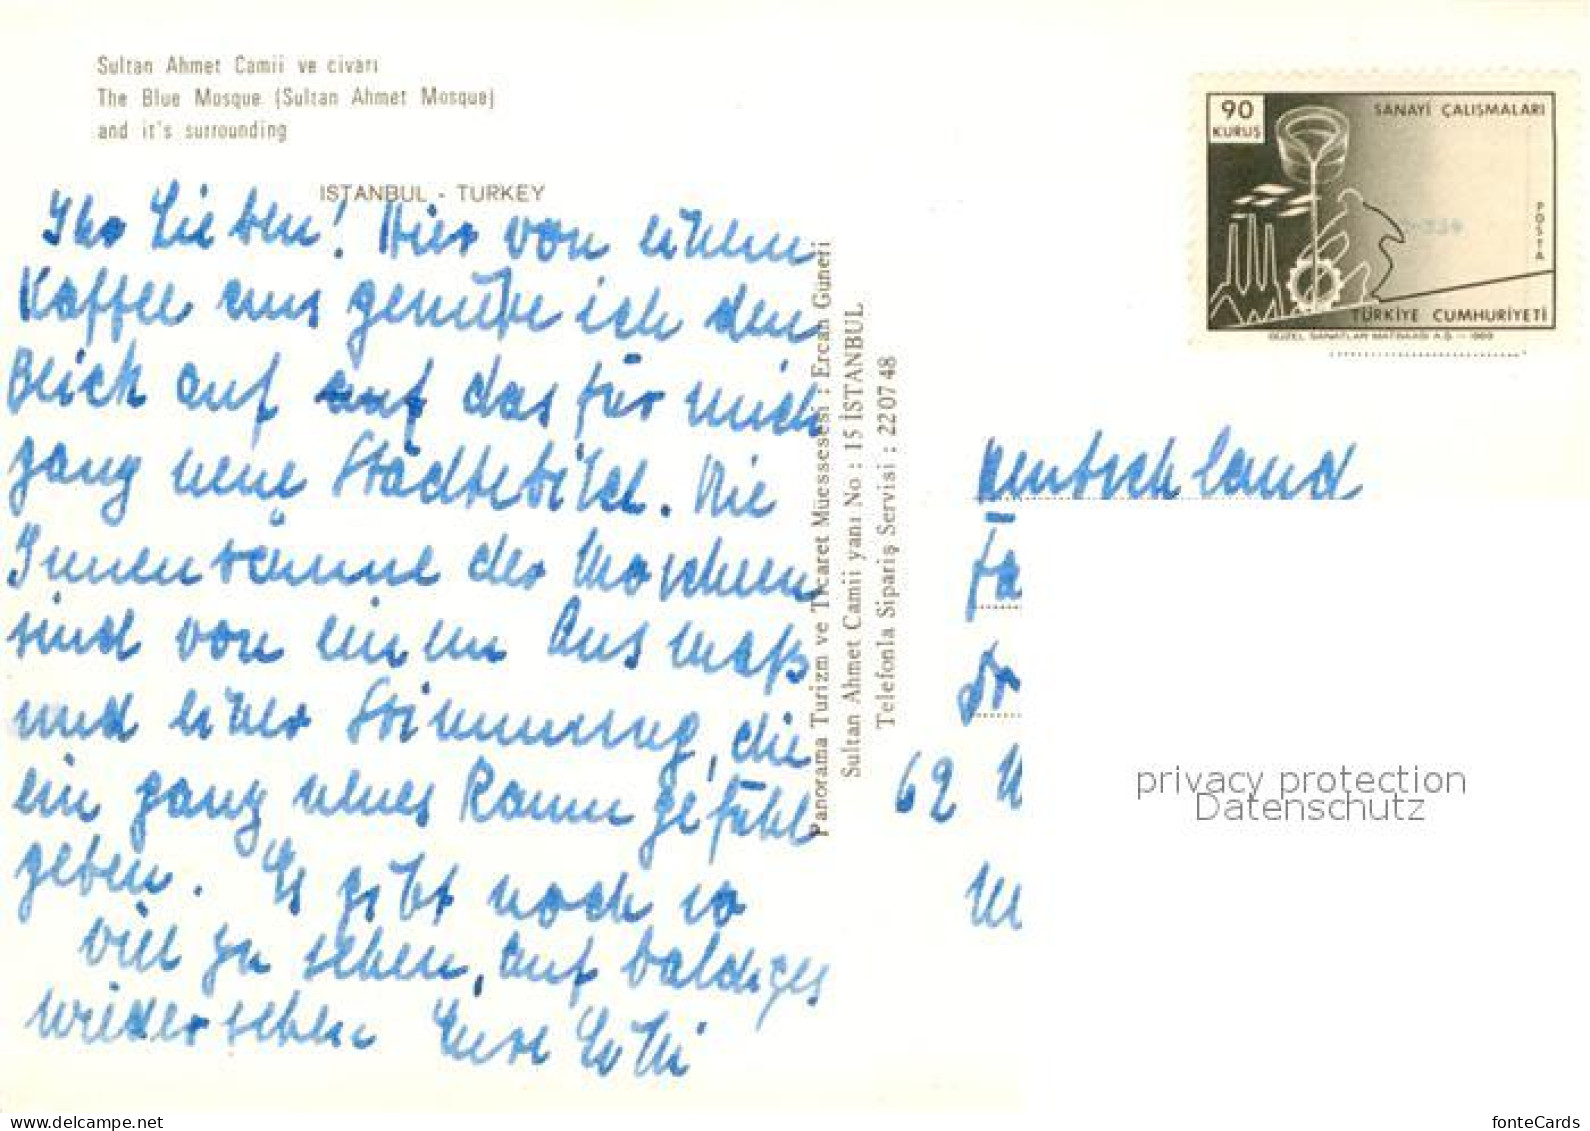 Sultan Ahmet Camii ve civarı
The Blue Mosque (Sultan Ahmet Mosque)
and it's surrounding
ISTANBUL - TURKEY
Ihr Lieben! Hier von
Kaffee aus genieße ich den
Blick auf auf das für mich
ganz neue Städtebild. Die
Innenräume der Moscheen
sind von einem Ausmaß
und einer Stimmung, die
ein ganz neues Raumgefühl
geben. Es gibt noch so
viel zu sehen, auf baldiges
Wiedersehen Eure
Panorama Turizm ve Ticaret Müessesesi : Ercan Güneri
Sultan Ahmet Camii yanı No : 15 İSTANBUL
Telefonla Sipariş Servisi : 22 07 48
90
KURUŞ
SANAYİ ÇALIŞMALARI
POSTA
TÜRKİYE CUMHURİYETİ
GÜZEL SANATLAR MATBAASI A.Ş. — 1969
Deutschland
Fa
Dr
62 W
privacy protection
Datenschutz
fonteCards
delcampe.net